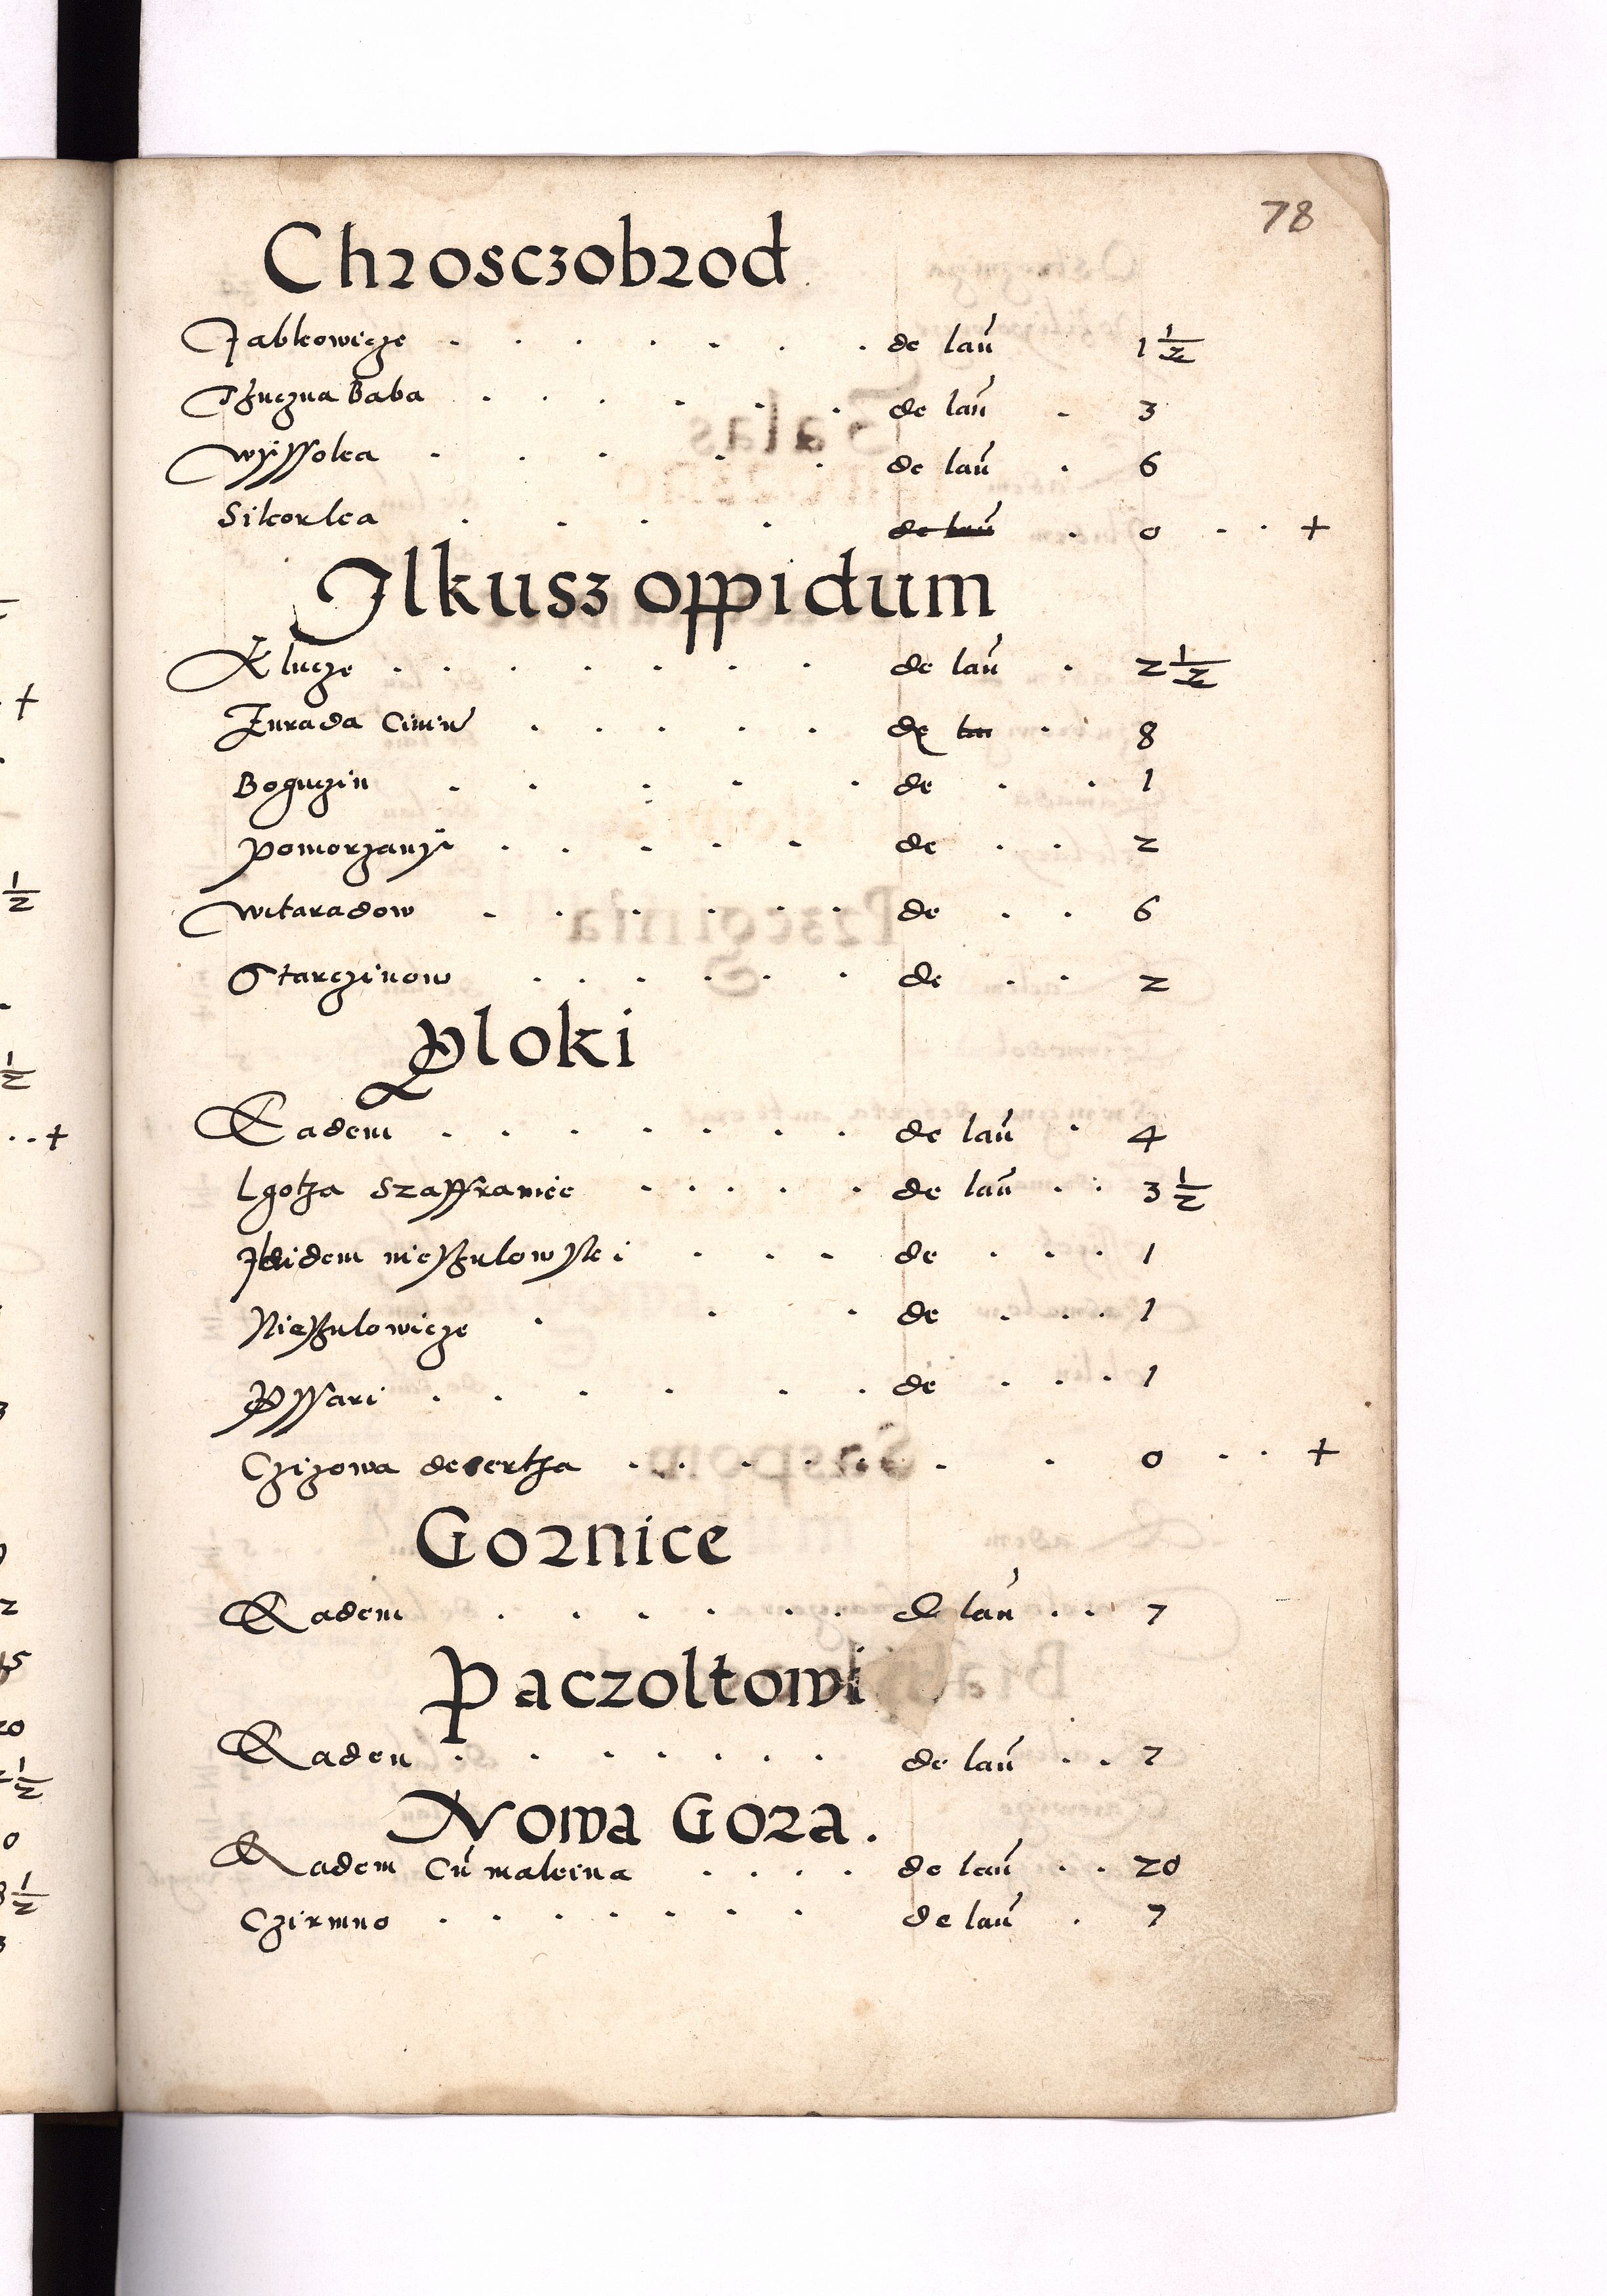 78
Chrosczobrod
Jabkowicze . . . . . . . de lan̄ 1 1/2
Tzuczna Baba . . . . . de lan̄ . 3
Wyssoka . . . . . de lan̄ . 6
Sikorka . . . . de lan̄ . 0 . . +
Ilkusz oppidum
Klucze . . . . . . . de lan̄ . 2 1/2
Zurada . . . . . de lan . 8
Boguczin . . . . . de . . 1
pomorzany . . . . . de . . 2
Witaradow . . . . . . de . . 6
Starczinow . . . . . . de . . 2
Ploki
Eadem . . . . . . . de lan̄ . 4
Lgotza Szaffraniec . . . . . de lan̄ . . 3 1/2
Ibidem nieszulowski . . . de . . . 1
Nieszulowicze . . . de . . . 1
Pssari . . . . . . de . . . 1
Czizowa desertza . . . . . . . . 0 . . +
Gornice
Eadem . . . . . . de lan̄ . . 7
Paczoltowi
Eaden . . . . . . . de lan̄ . . 7
Nowa Gora .
Eadem Cū malcina . . . . de lan̄ . . 20
Czirmno . . . . . . . de lan̄ . 7